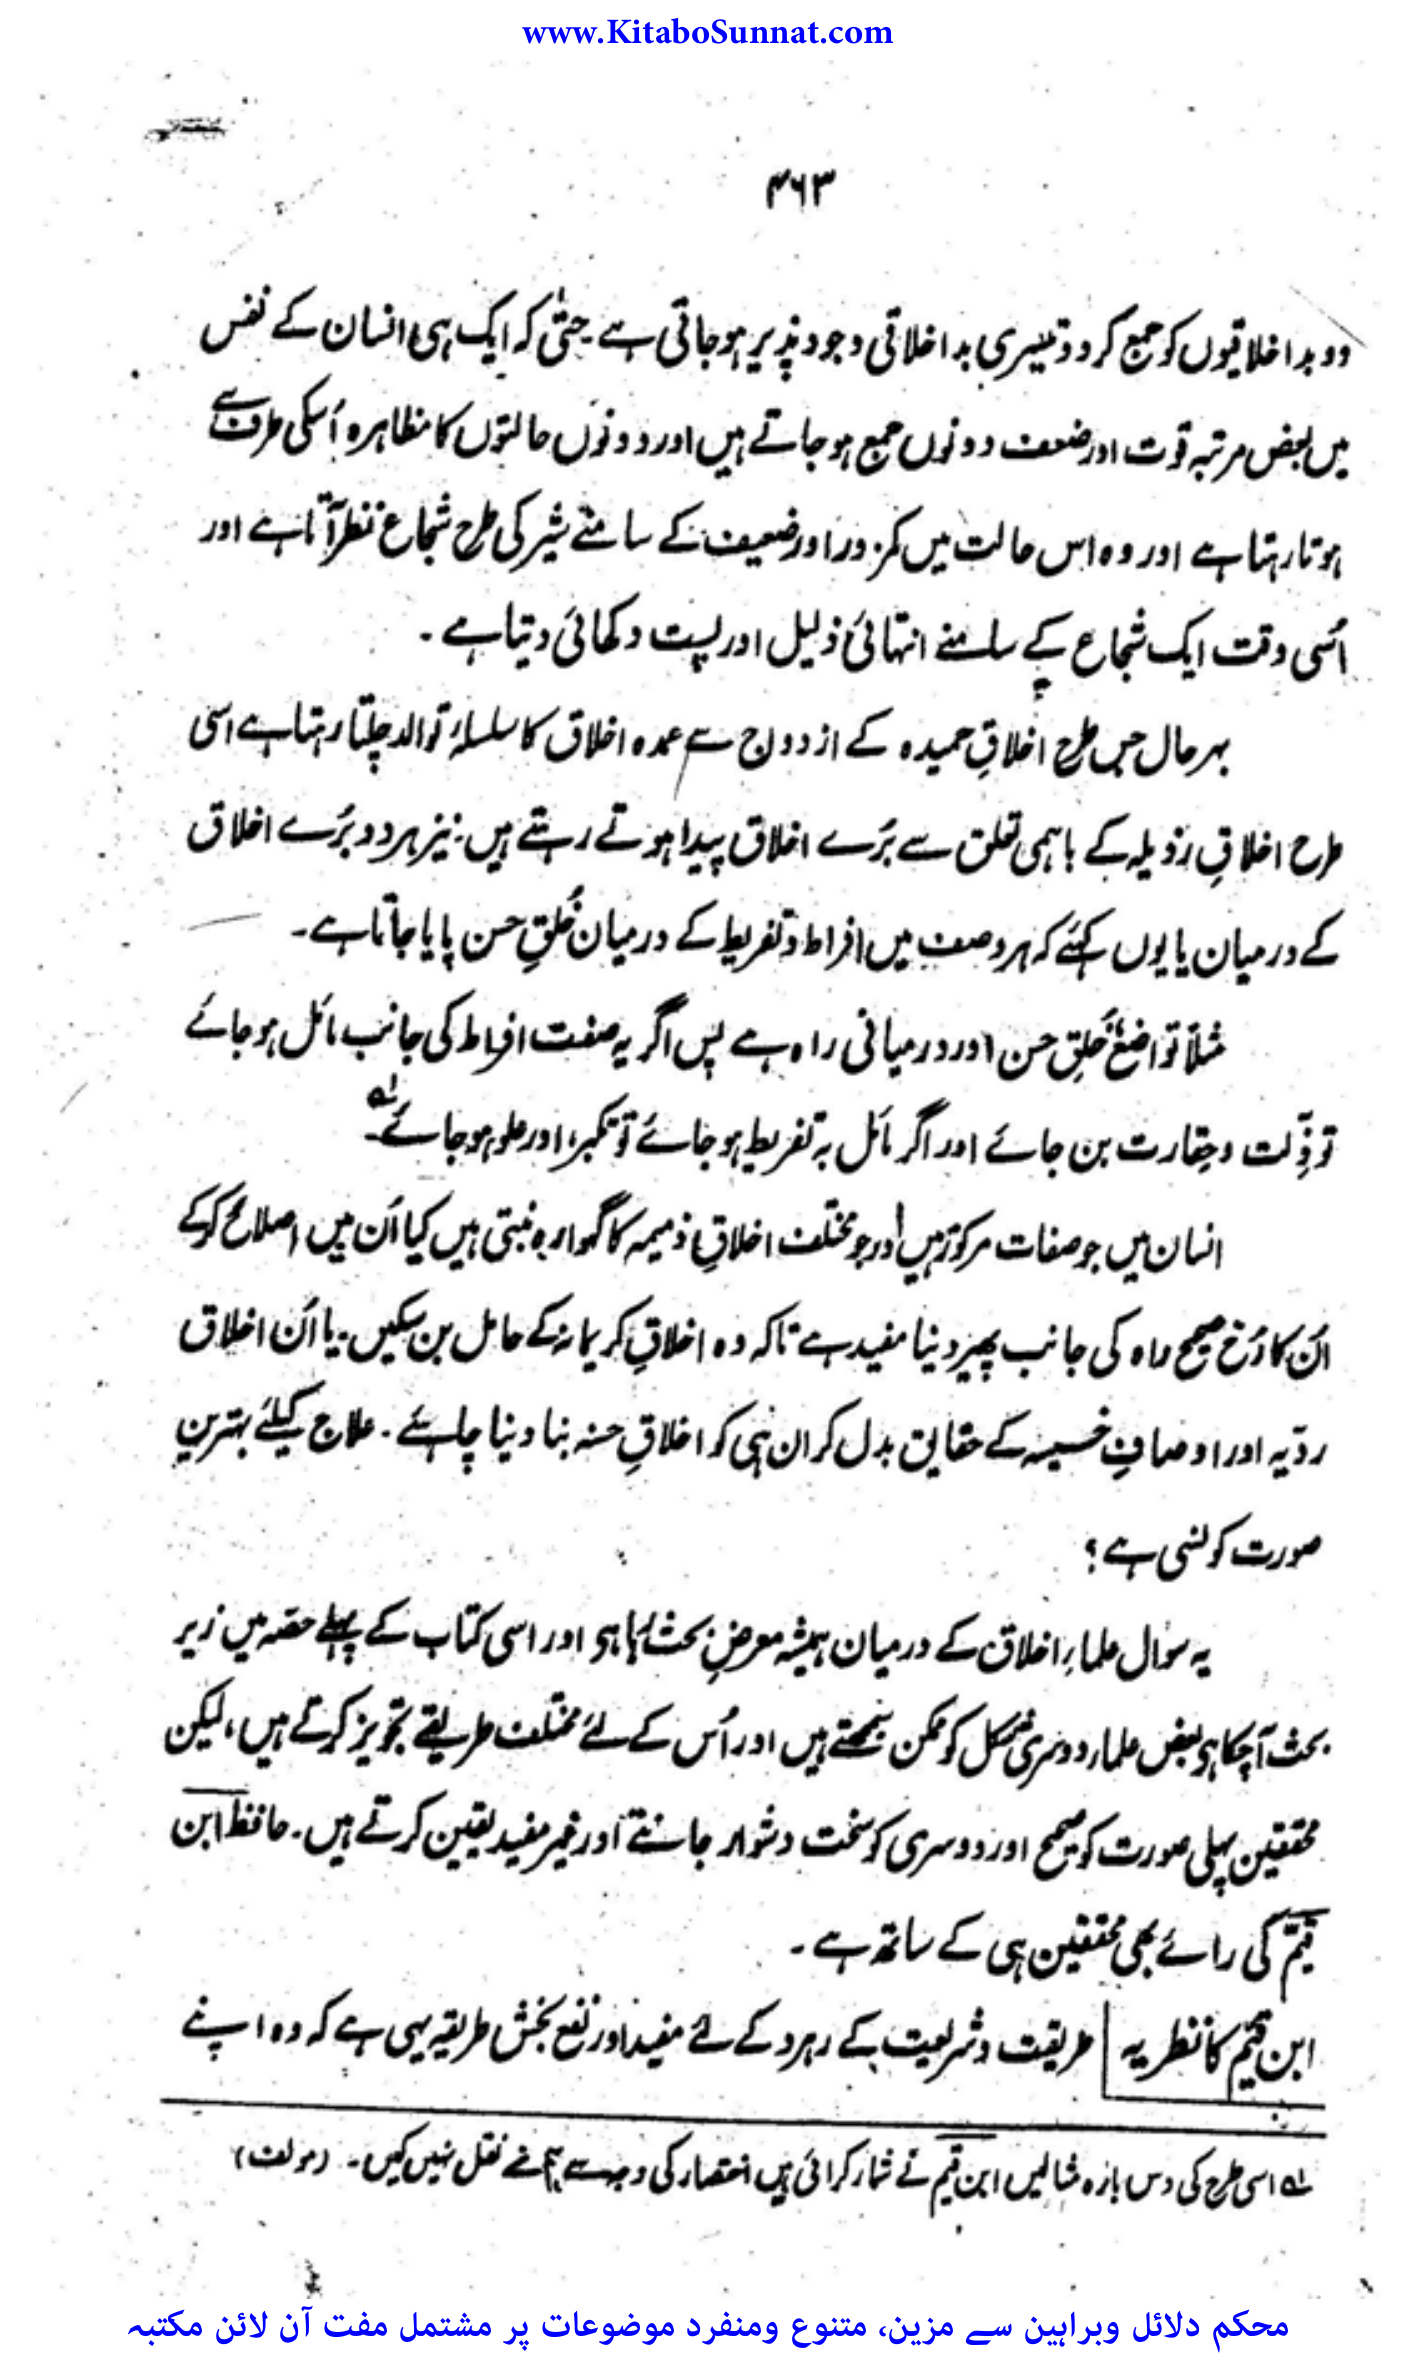 www.KitaboSunnat.com
۴۶۳
دو بد اخلاقیوں کو جمع کر دو تیسری بد اخلاقی وجود پذیر ہو جاتی ہے۔ حتیٰ کہ ایک ہی انسان کے نفس
میں بعض مرتبہ قوت اور ضعف دونوں جمع ہو جاتے ہیں اور دونوں حالتوں کا مظاہرہ اُسکی طرف سے
ہوتا رہتا ہے اور وہ اس حالت میں کمزور اور ضعیف کے سامنے شیر کی طرح شجاع نظر آتا ہے اور
اُسی وقت ایک شجاع کے سامنے انتہائی ذلیل اور پست دکھائی دیتا ہے۔
بہر حال جس طرح اخلاقِ حمیدہ کے ازدواج سے عمدہ اخلاق کا سلسلۂ توالد چلتا رہتا ہے اسی
طرح اخلاقِ رذیلہ کے باہمی تعلق سے بُرے اخلاق پیدا ہوتے رہتے ہیں۔ نیز ہر دو بُرے اخلاق
کے درمیان یا یوں کہئے کہ ہر وصف میں افراط و تفریط کے درمیان خُلقِ حسن پایا جاتا ہے۔
مثلاً تواضع خُلقِ حسن اور درمیانی راہ ہے پس اگر یہ صفت افراط کی جانب مائل ہو جائے
تو ذِلّت و حقارت بن جائے اور اگر مائل بہ تفریط ہو جائے تو تکبر، اور علو ہو جائے۔ لہ
انسان میں جو صفات مرکوز ہیں اور جو مختلف اخلاقِ ذمیمہ کا گہوارہ بنتی ہیں کیا اُن میں اصلاح کر کے
اُن کا رُخ صحیح راہ کی جانب پھیر دینا مفید ہے تاکہ وہ اخلاقِ کریمانہ کے حامل بن سکیں۔ یا اُن اخلاق
ردّیہ اور اوصافِ خسیسہ کے حقایق بدل کر ان ہی کو اخلاقِ حسنہ بنا دینا چاہئے۔ علاج کیلئے بہترین
صورت کونسی ہے؟
یہ سوال علماءِ اخلاق کے درمیان ہمیشہ معرضِ بحث رہا ہے اور اسی کتاب کے پہلے حصّہ میں زیر
بحث آ چکا ہے بعض علماء دوسری شکل کو ممکن سمجھتے ہیں اور اُس کے لئے مختلف طریقے تجویز کرتے ہیں، لیکن
محققین پہلی صورت کو صحیح اور دوسری کو سخت دشوار جانتے اور غیر مفید یقین کرتے ہیں۔ حافظ ابن
قیمّ کی رائے بھی محققین ہی کے ساتھ ہے۔
ابن قیم کا نظریہ طریقت و شریعت کے رہرو کے لئے مفید اور نفع بخش طریقہ یہی ہے کہ وہ اپنے
لہ اسی طرح کی دس بارہ مثالیں ابن قیم نے شمار کرائی ہیں اختصار کی وجہ سے ہم نے نقل نہیں کیں۔ (مولف)
محکم دلائل وبراہین سے مزین، متنوع ومنفرد موضوعات پر مشتمل مفت آن لائن مکتبہ